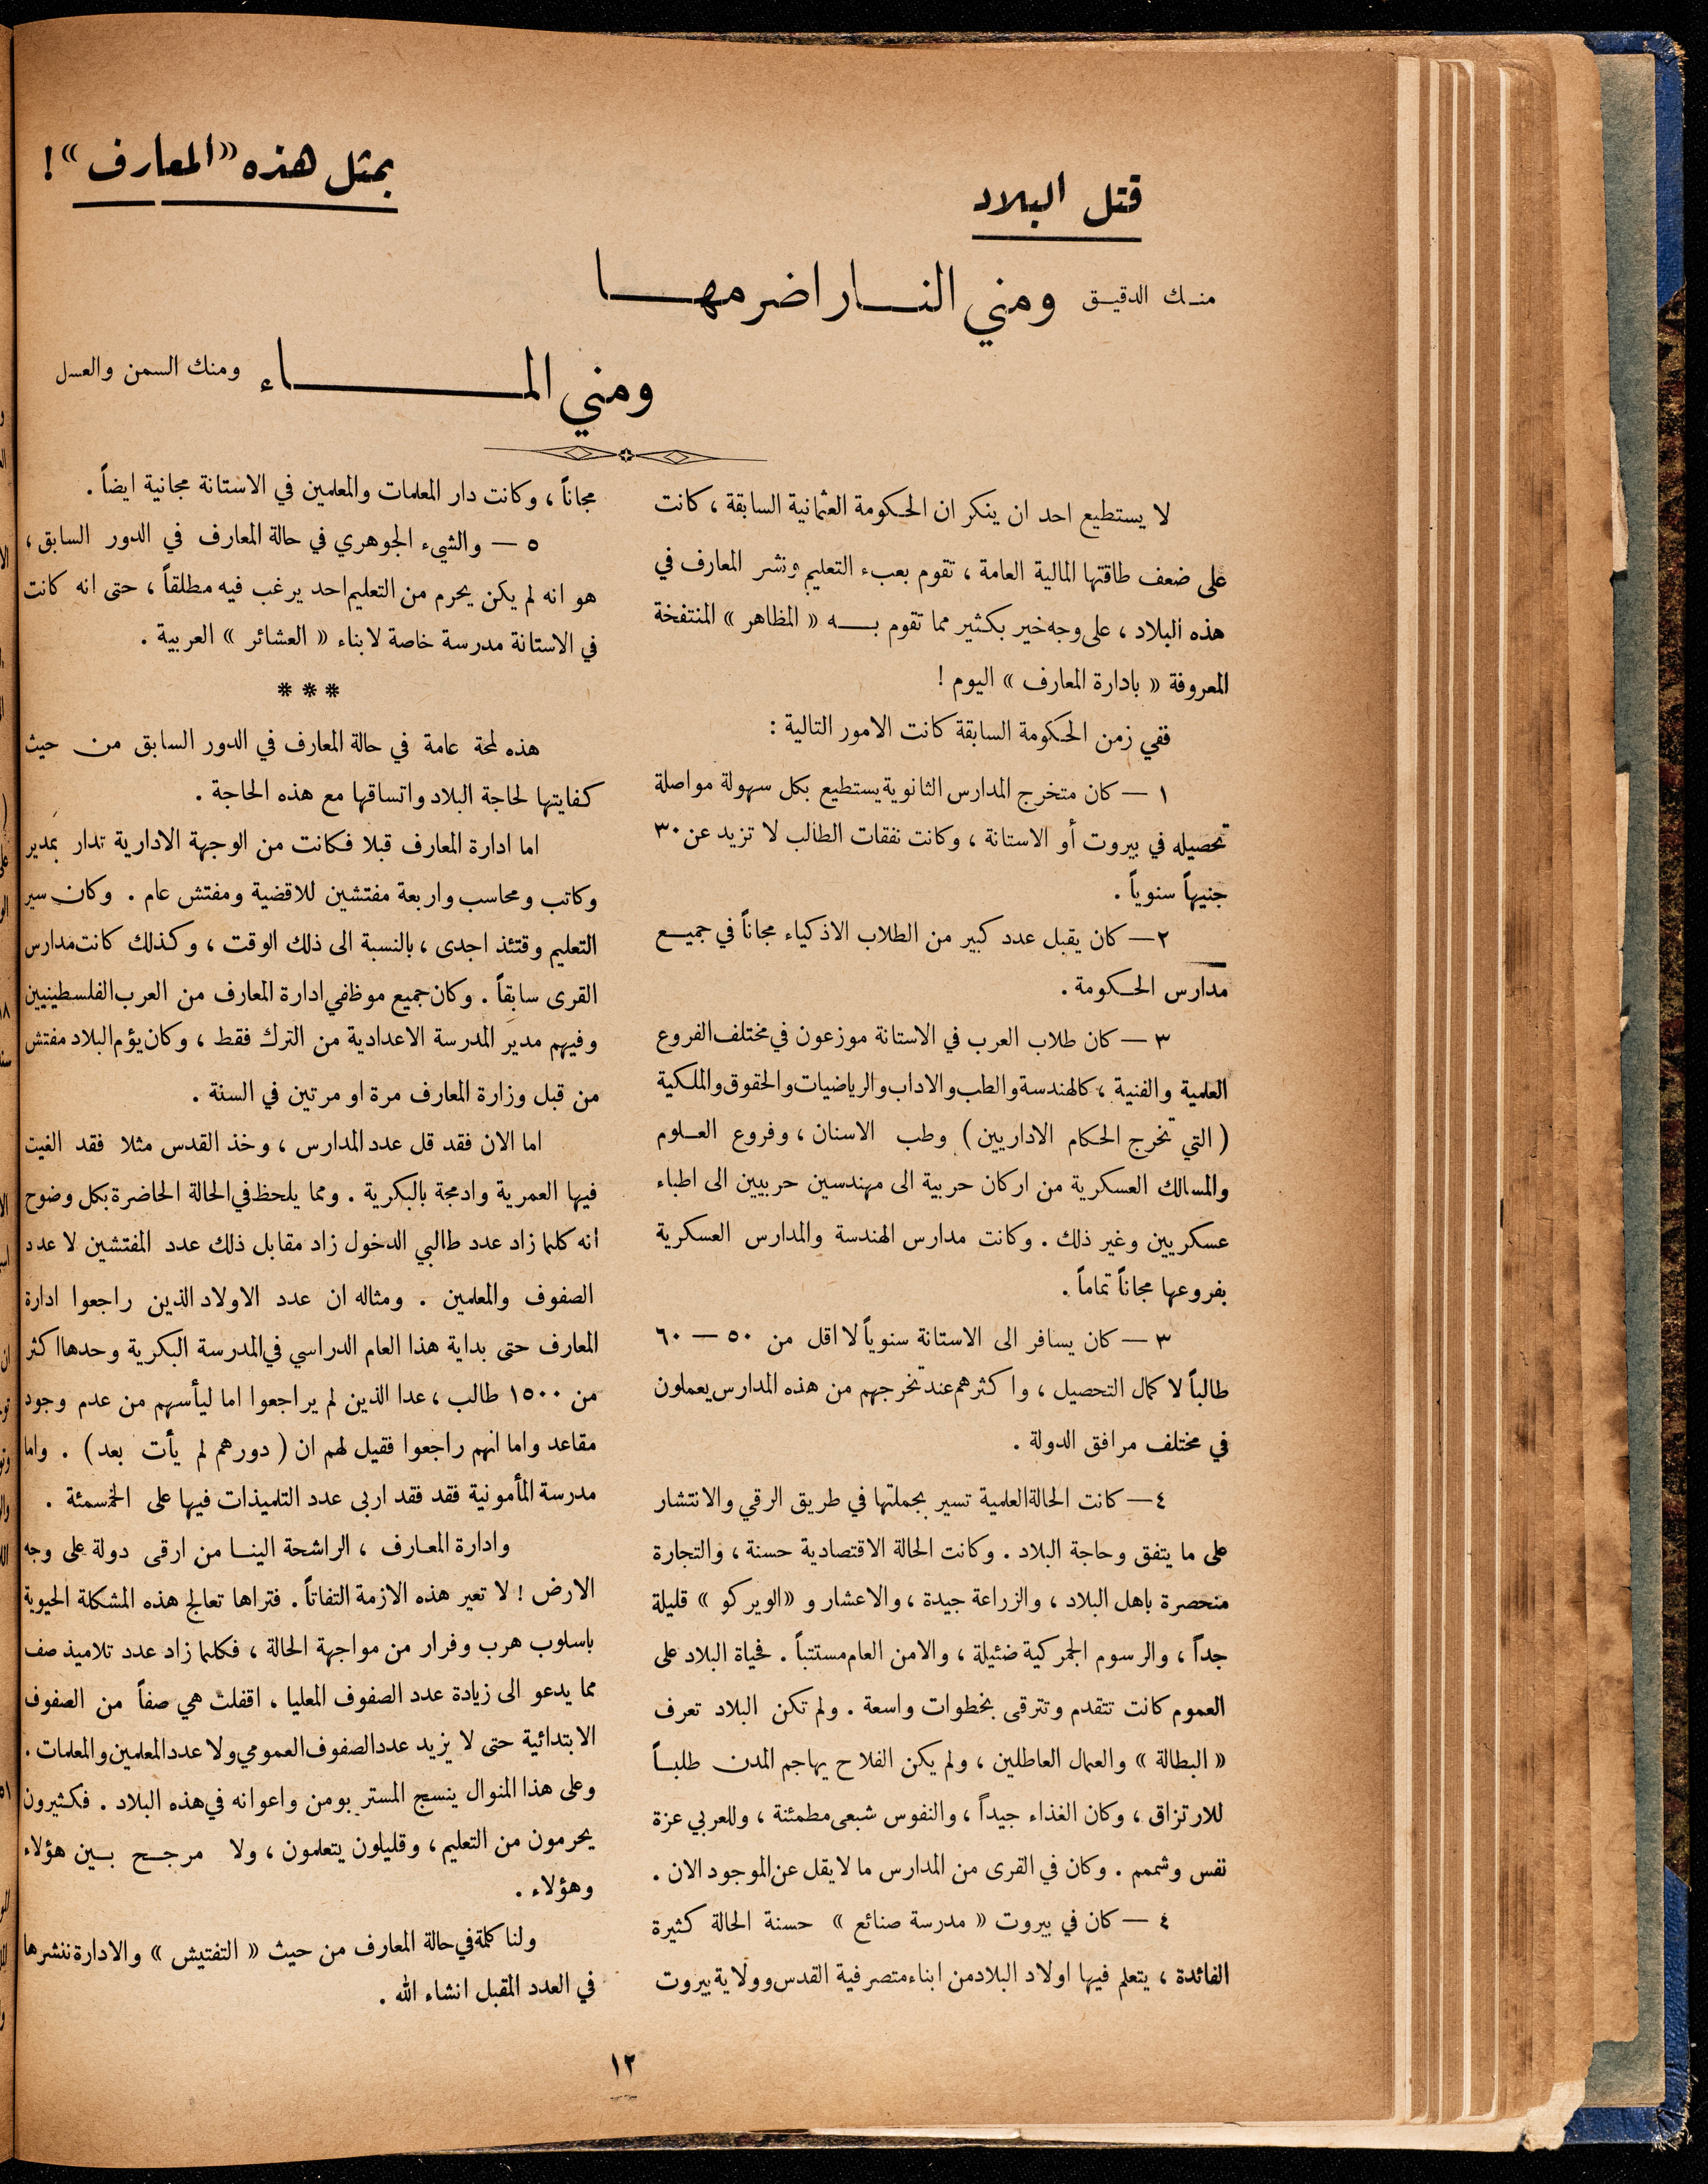 قتل البلاد
بمثل هذه «المعارف» !
منـك الدقيـق ومني النـــار اضرمهـــــا
ومني المـــــــــــاء ومنك السمن والعسل
لا يستطيع احد ان ينكر ان الحكومة العثمانية السابقة ، كانت
على ضعف طاقتها المالية العامة ، تقوم بعبء التعليم ونشر المعارف في
هذه البلاد ، على وجه خير بكثير مما تقوم بـــه « المظاهر » المنتفخة
المعروفة « بادارة المعارف » اليوم !
ففي زمن الحكومة السابقة كانت الامور التالية :
١ — كان متخرج المدارس الثانوية يستطيع بكل سهولة مواصلة
تحصيله في بيروت أو الاستانة ، وكانت نفقات الطالب لا تزيد عن ٣٠
جنيهاً سنوياً .
٢ — كان يقبل عدد كبير من الطلاب الاذكياء مجاناً في جميـــع
مدارس الحكومة .
٣ — كان طلاب العرب في الاستانة موزعون في مختلف الفروع
العلمية والفنية ، كالهندسة والطب والاداب والرياضيات والحقوق والملكية
( التي تخرج الحكام الاداريين ) وطب الاسنان ، وفروع العـلوم
والمسالك العسكرية من اركان حربية الى مهندسين حربيين الى اطباء
عسكريين وغير ذلك . وكانت مدارس الهندسة والمدارس العسكرية
بفروعها مجاناً تماماً .
٣ — كان يسافر الى الاستانة سنوياً لا اقل من ٥٠ — ٦٠
طالباً لا كمال التحصيل ، واكثرهم عند تخرجهم من هذه المدارس يعملون
في مختلف مرافق الدولة .
٤ — كانت الحالة العلمية تسير بجملتها في طريق الرقي والانتشار
على ما يتفق وحاجة البلاد . وكانت الحالة الاقتصادية حسنة ، والتجارة
منحصرة باهل البلاد ، والزراعة جيدة ، والاعشار و «الويركو » قليلة
جداً ، والرسوم الجمركية ضئيلة ، والامن العام مستتباً . فحياة البلاد على
العموم كانت تتقدم وتترقى بخطوات واسعة . ولم تكن البلاد تعرف
« البطالة » والعمال العاطلين ، ولم يكن الفلاح يهاجم المدن طلبـاً
للارتزاق ، وكان الغذاء جيداً ، والنفوس شبعى مطمئنة ، وللعربي عزة
نفس وشمم . وكان في القرى من المدارس ما لا يقل عن الموجود الان .
٤ — كان في بيروت « مدرسة صنائع » حسنة الحالة كثيرة
الفائدة ، يتعلم فيها اولاد البلاد من ابناء متصرفية القدس وولاية بيروت
مجاناً ، وكانت دار المعلمات والمعلمين في الاستانة مجانية ايضاً .
٥ — والشيء الجوهري في حالة المعارف في الدور السابق ،
هو انه لم يكن يحرم من التعليم احد يرغب فيه مطلقاً ، حتى انه كانت
في الاستانة مدرسة خاصة لابناء « العشائر » العربية .
* * *
هذه لمحة عامة في حالة المعارف في الدور السابق من حيث
كفايتها لحاجة البلاد واتساقها مع هذه الحاجة .
اما ادارة المعارف قبلا فكانت من الوجهة الادارية تدار بمدير
وكاتب ومحاسب واربعة مفتشين للاقضية ومفتش عام . وكان سير
التعليم وقتئذ اجدى ، بالنسبة الى ذلك الوقت ، وكذلك كانت مدارس
القرى سابقاً . وكان جميع موظفي ادارة المعارف من العرب الفلسطينيين
وفيهم مدير المدرسة الاعدادية من الترك فقط ، وكان يؤم البلاد مفتش
من قبل وزارة المعارف مرة او مرتين في السنة .
اما الان فقد قل عدد المدارس ، وخذ القدس مثلا فقد الغيت
فيها العمرية وادمجة بالبكرية . ومما يلحظ في الحالة الحاضرة بكل وضوح
أنه كلما زاد عدد طالبي الدخول زاد مقابل ذلك عدد المفتشين لا عدد
الصفوف والمعلمين . ومثاله ان عدد الاولاد الذين راجعوا ادارة
المعارف حتى بداية هذا العام الدراسي في المدرسة البكرية وحدها اكثر
من ١٥٠٠ طالب ، عدا الذين لم يراجعوا اما ليأسهم من عدم وجود
مقاعد واما انهم راجعوا فقيل لهم ان ( دورهم لم يأت بعد ) . واما
مدرسة المأمونية فقد فقد اربى عدد التلميذات فيها على الخمسمئة .
وادارة المعـارف ، الراشحة الينـا من ارقى دولة على وجه
الارض ! لا تعير هذه الازمة التفاتاً . فتراها تعالج هذه المشكلة الحيوية
باسلوب هرب وفرار من مواجهة الحالة ، فكلما زاد عدد تلاميذ صف
مما يدعو الى زيادة عدد الصفوف العليا ، اقفلت هي صفاً من الصفوف
الابتدائية حتى لا يزيد عدد الصفوف العمومي ولا عدد المعلمين والمعلمات .
وعلى هذا المنوال ينسج المستر بومن واعوانه في هذه البلاد . فكثيرون
يحرمون من التعليم ، وقليلون يتعلمون ، ولا مرجـح بـين هؤلاء
وهؤلاء .
ولنا كلمة في حالة المعارف من حيث « التفتيش » والادارة ننشرها
في العدد المقبل انشاء الله .
١٢